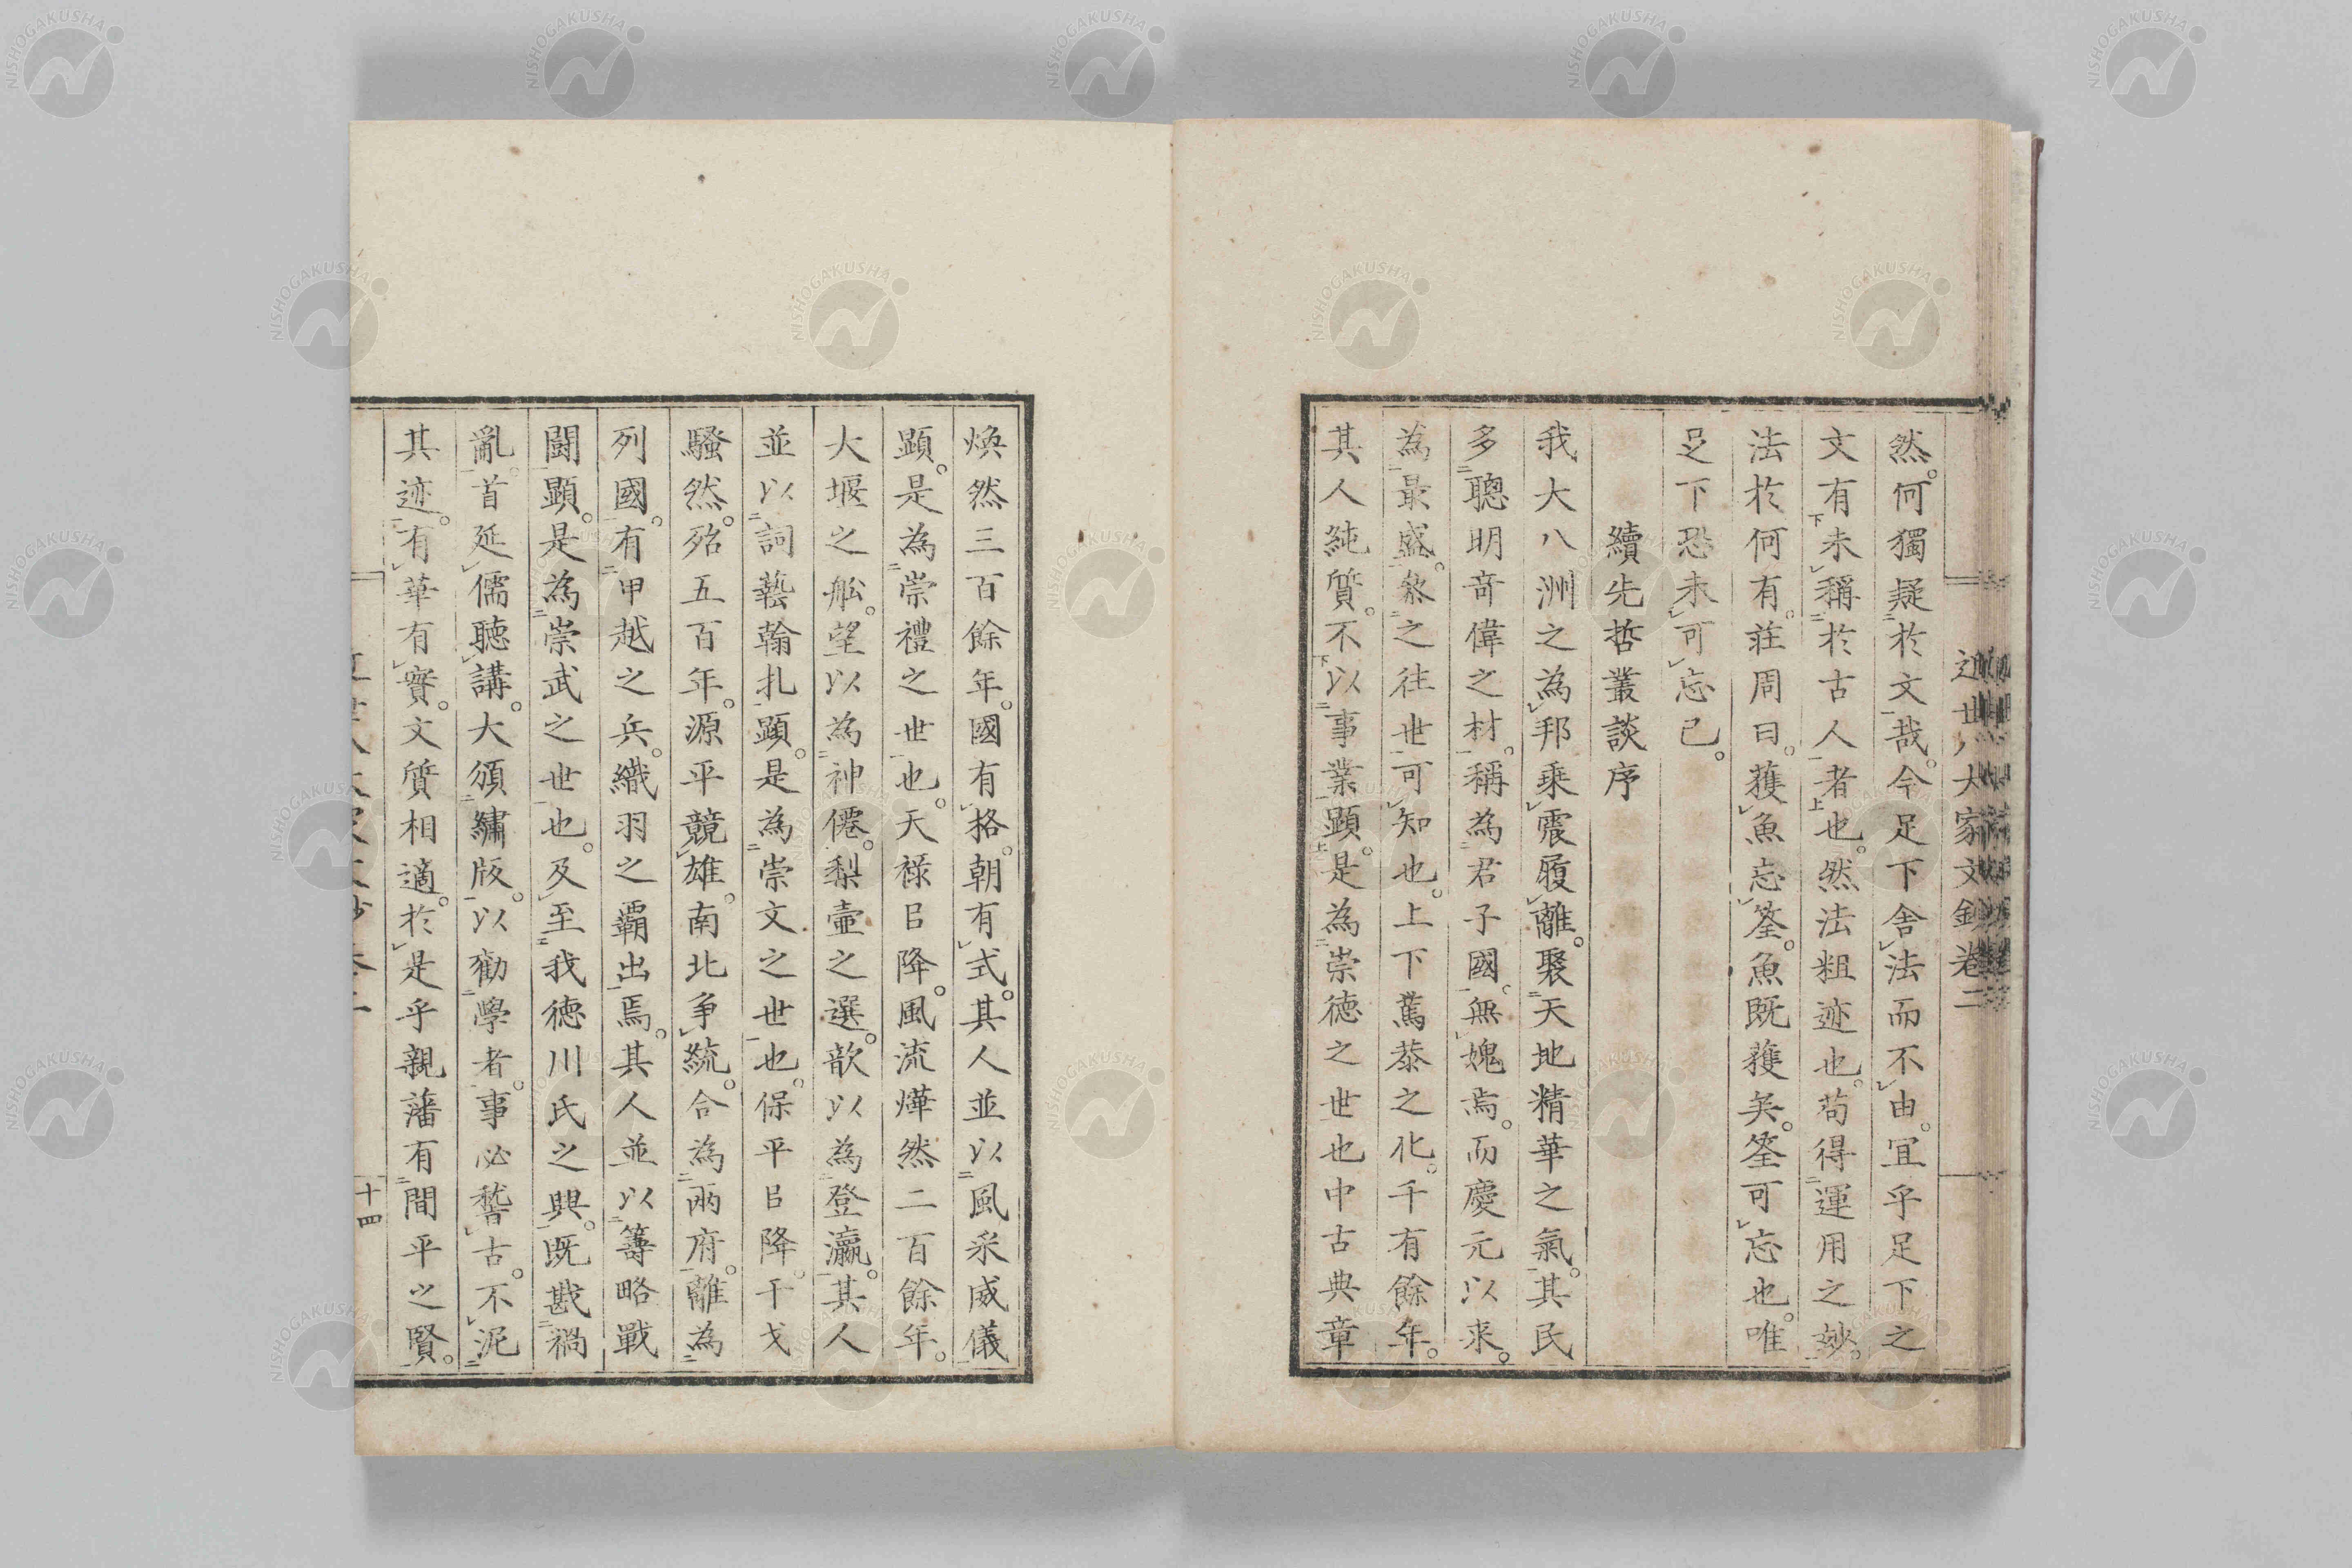 近世八大家文鈔卷二
然。何獨疑於文哉。今足下舍法而不由。宜乎足下之
文有未稱於古人者也。然法粗迹也。苟得運用之妙。
法於何有。莊周曰。獲魚忘筌。魚既獲矣。筌可忘也。唯
足下恐未可忘已。
續先哲叢談序
我大八洲之為邦乘震履離。聚天地精華之氣。其民
多聰明奇偉之材。稱為君子國。無媿焉。而慶元以來。
為最盛。粲之往世可知也。上下篤恭之化。千有餘年。
其人純質。不以事業顯。是為崇德之世也中古典章
煥然三百餘年。國有格。朝有式。其人並以風采威儀
顯。是為崇禮之世也。天祿㠯降。風流燁然二百餘年。
大堰之舩。望以為神僊。梨壷之選。歆以為登瀛。其人
並以詞藝翰札顯。是為崇文之世也。保平㠯降。干戈
騷然。殆五百年。源平競雄。南北争統。合為兩府。離為
列國。有甲越之兵。織羽之覇出焉。其人並以籌略戰
鬪顯。是為崇武之世也。及至我徳川氏之興。既戡禍
亂。首延儒聽講。大頒繡版。以勸學者。事必嵆古。不泥
其迹。有華有實。文質相適。於是乎親藩有間平之賢。
十四